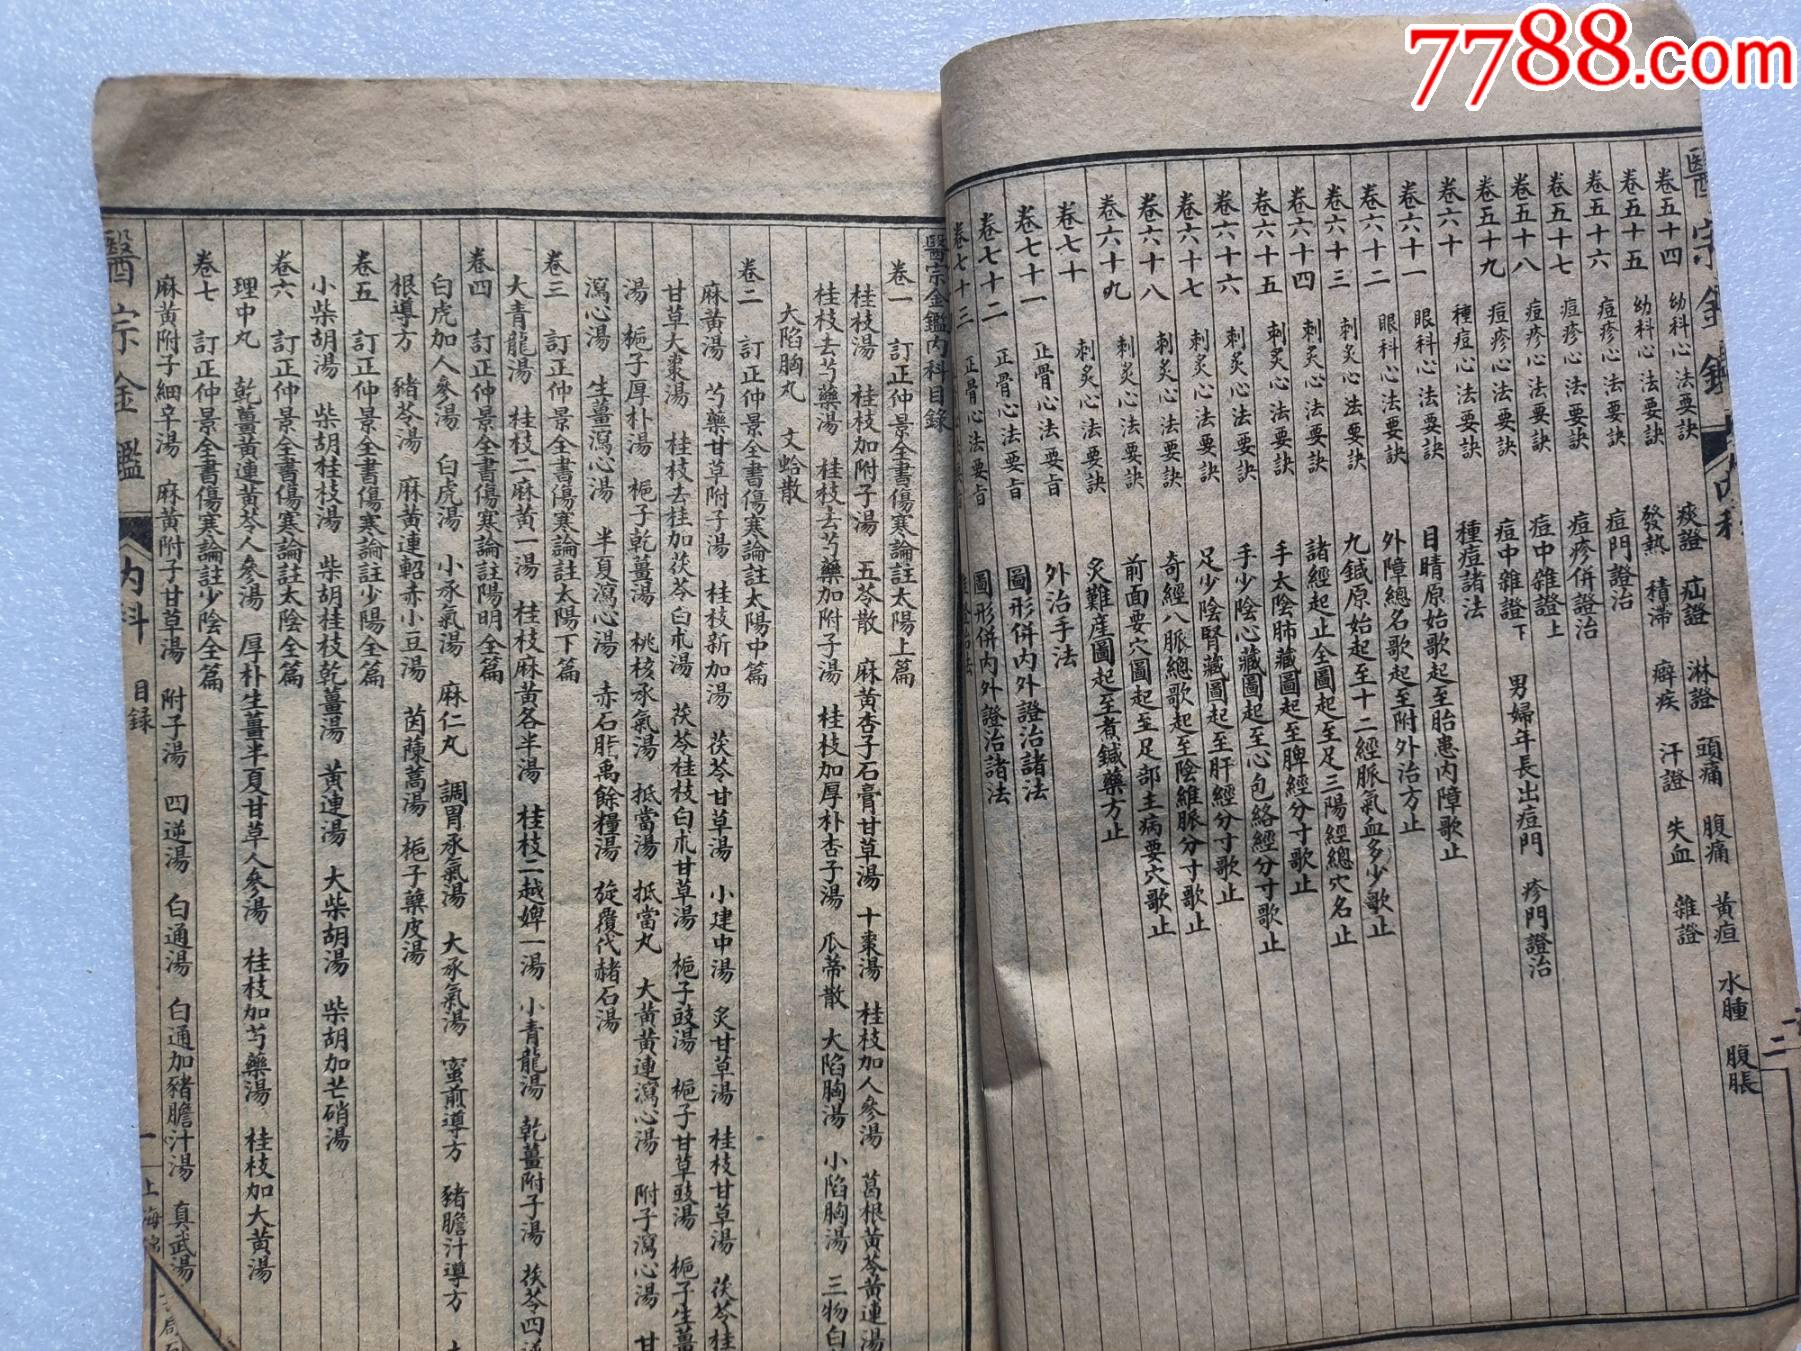 7788.com
卷五十四　幼科心法要訣　痰證　疝證　淋證　頭痛　腹痛　黃疸　水腫　腹脹
卷五十五　幼科心法要訣　發熱　積滯　癖疾　汗證　失血　雜證
卷五十六　痘疹心法要訣　痘門證治
卷五十七　痘疹心法要訣　痘疹併證治
卷五十八　痘疹心法要訣　痘中雜證上
卷五十九　痘疹心法要訣　痘中雜證下　男婦年長出痘門　疹門證治
卷六十　種痘心法要訣　種痘諸法
卷六十一　眼科心法要訣　目睛原始歌起至胎患內障歌止
卷六十二　眼科心法要訣　外障總名歌起至附外治方止
卷六十三　刺炙心法要訣　九鍼原始起至十二經脈氣血多少歌止
卷六十四　刺炙心法要訣　諸經起止全圖起至足三陽經總穴名止
卷六十五　刺炙心法要訣　手太陰肺藏圖起至脾經分寸歌止
卷六十六　刺炙心法要訣　手少陰心藏圖起至心包絡經分寸歌止
卷六十七　刺炙心法要訣　足少陰腎藏圖起至肝經分寸歌止
卷六十八　刺炙心法要訣　奇經八脈總歌起至陰維脈分寸歌止
卷六十九　刺炙心法要訣　前面要穴圖起至足部主病要穴歌止
卷七十　刺炙心法要訣　炙難産圖起至煮鍼藥方止
卷七十一　正骨心法要旨　外治手法
卷七十二　正骨心法要旨　圖形併內外證治諸法
卷七十三　正骨心法要旨　圖形併內外證治諸法
醫宗金鑑內科目錄
卷一　訂正仲景全書傷寒論註太陽上篇
桂枝湯　桂枝加附子湯　五苓散　麻黃杏子石膏甘草湯　十棗湯　桂枝加人參湯　葛根黃芩黃連湯
桂枝去芍藥湯　桂枝去芍藥加附子湯　桂枝加厚朴杏子湯　瓜蒂散　大陷胸湯　小陷胸湯　三物白
大陷胸丸　文蛤散
卷二　訂正仲景全書傷寒論註太陽中篇
麻黃湯　芍藥甘草附子湯　桂枝新加湯　茯苓甘草湯　小建中湯　炙甘草湯　桂枝甘草湯　茯苓桂
甘草大棗湯　桂枝去桂加茯苓白朮湯　茯苓桂枝白朮甘草湯　梔子豉湯　梔子甘草豉湯　梔子生薑
湯　梔子厚朴湯　梔子乾薑湯　桃核承氣湯　抵當湯　抵當丸　大黃黃連瀉心湯　附子瀉心湯　甘
瀉心湯　生薑瀉心湯　半夏瀉心湯　赤石脂禹餘糧湯　旋覆代赭石湯
卷三　訂正仲景全書傷寒論註太陽下篇
大青龍湯　桂枝二麻黃一湯　桂枝麻黃各半湯　桂枝二越婢一湯　小青龍湯　乾薑附子湯　茯苓四逆
卷四　訂正仲景全書傷寒論註陽明全篇
白虎加人參湯　白虎湯　小承氣湯　麻仁丸　調胃承氣湯　大承氣湯　蜜煎導方　豬膽汁導方
根導方　豬苓湯　麻黃連軺赤小豆湯　茵蔯蒿湯　梔子蘗皮湯
卷五　訂正仲景全書傷寒論註少陽全篇
小柴胡湯　柴胡桂枝湯　柴胡桂枝乾薑湯　黃連湯　大柴胡湯　柴胡加芒硝湯
卷六　訂正仲景全書傷寒論註太陰全篇
理中丸　乾薑黃連黃芩人參湯　厚朴生薑半夏甘草人參湯　桂枝加芍藥湯　桂枝加大黃湯
卷七　訂正仲景全書傷寒論註少陰全篇
麻黃附子細辛湯　麻黃附子甘草湯　附子湯　四逆湯　白通湯　白通加豬膽汁湯　真武湯
醫宗金鑑　內科　目錄　一　上海